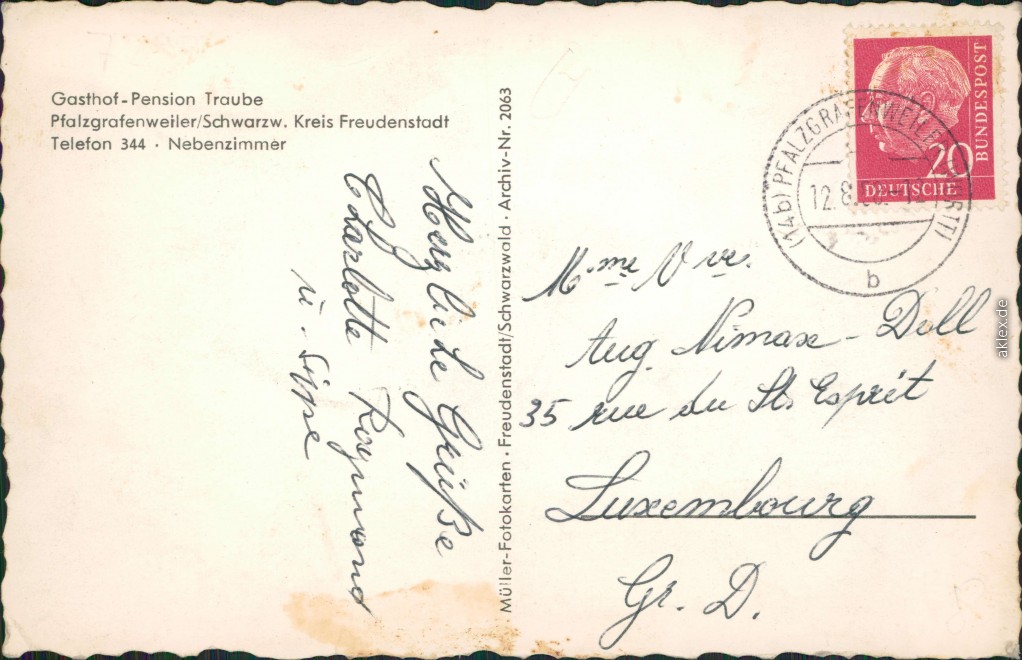 Gasthof-Pension Traube
Pfalzgrafenweiler/Schwarzw. Kreis Freudenstadt
Telefon 344 · Nebenzimmer
Herzliche Grüße
Charlotte Raymond
u. Sippe
Müller-Fotokarten · Freudenstadt/Schwarzwald · Archiv-Nr. 2063
DEUTSCHE
BUNDESPOST
20
(14b) PFALZGRAFENWEILER (WÜRTT)
12.8.
b
Mme Vve.
Aug. Nimax-Doll
35 rue du St. Esprit
Luxembourg
Gr. D.
aklex.de